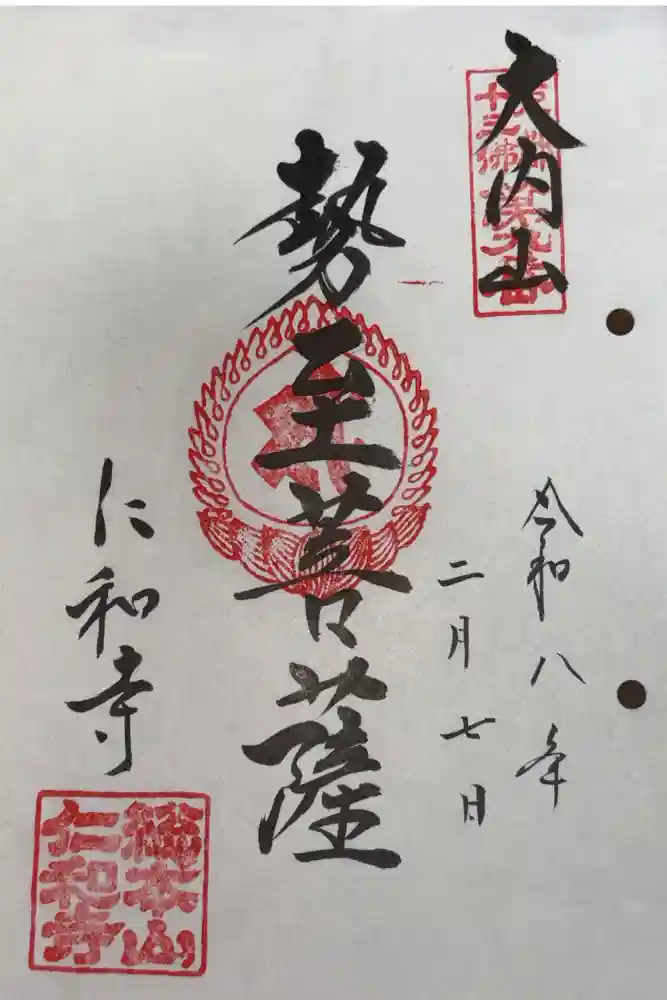 大内山
十三佛
第九番
令和八年
二月七日
勢至菩薩
仁和寺
総本山
仁和寺